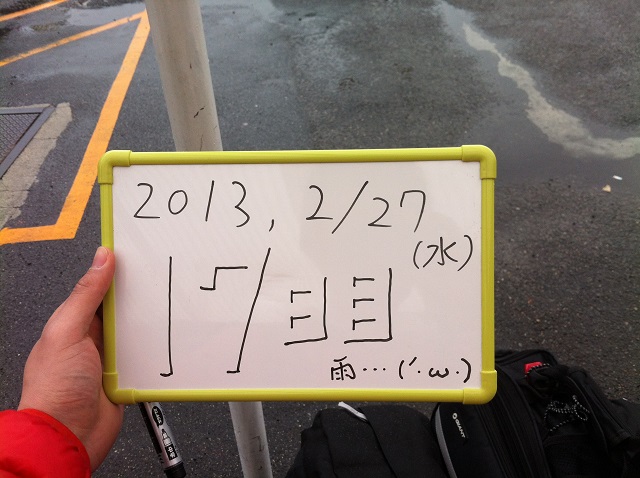 2013, 2/27
(水)
17日目
雨…(´・ω・)
GIANT